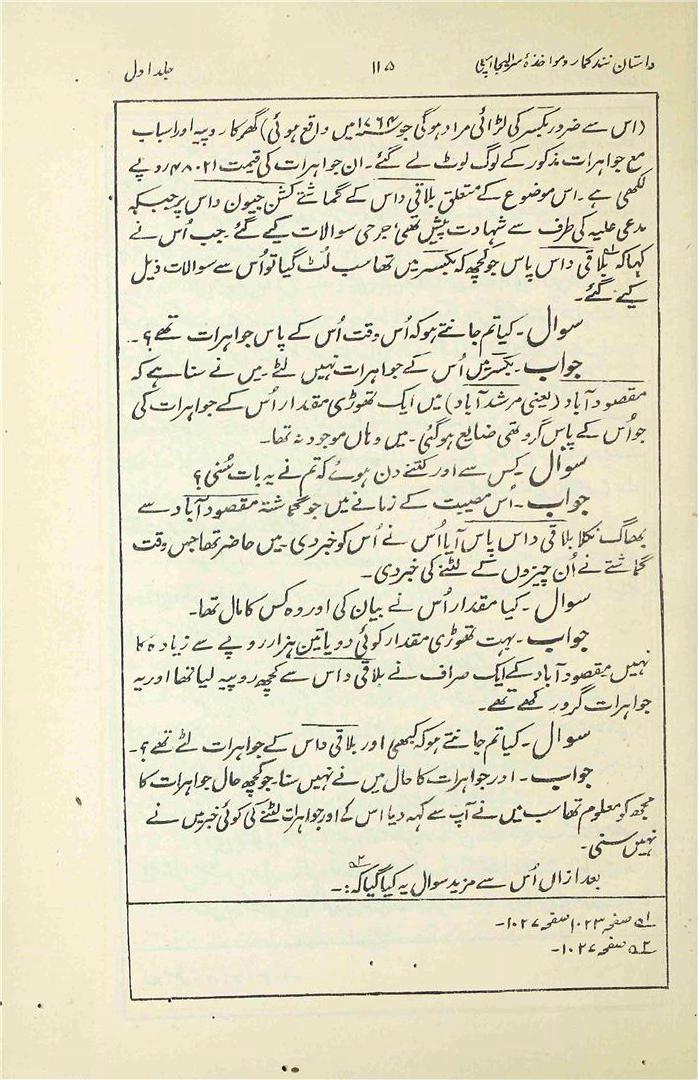 داستان نند کمار و مواخذۂ سر الیجا امپی ۱۱۵ جلد اول
(اس سے ضرور بکسر کی لڑائی مراد ہوگی جو ۱۷۶۴ء میں واقع ہوئی) گھر کا روپیہ اور اسباب
مع جواہرات مذکور کے لوگ لوٹ لے گئے۔ ان جواہرات کی قیمت ۴۸۰۲۱ روپے
لکھی ہے۔ اس موضوع کے متعلق بلاقی داس کے گماشتے کشن جیون داس پر جبکہ
مدعی علیہ کی طرف سے شہادت پیش تھی، جرحی سوالات کیے گئے۔ جب اُس نے
کہا کہ بلاقی داس پاس جو کچھ کہ بکسر میں تھا سب لُٹ گیا تو اُس سے سوالات ذیل
کیے گئے۔
سوال۔ کیا تم جانتے ہو کہ اُس وقت اُس کے پاس جواہرات تھے؟۔
جواب۔ بکسر میں اُس کے جواہرات نہیں لٹے۔ میں نے سنا ہے کہ
مقصود آباد (یعنی مرشد آباد) میں ایک تھوڑی مقدار اُس کے جواہرات کی
جو اُس کے پاس گرو تھی ضایع ہوگئی۔ میں وہاں موجود نہ تھا۔
سوال۔ کس سے اور کتنے دن ہوئے کہ تم نے یہ بات سُنی؟
جواب۔ اُس مصیبت کے زمانے میں جو گماشتہ مقصود آباد سے
بھاگ نکلا بلاقی داس پاس آیا اُس نے اُس کو خبر دی۔ میں حاضر تھا جس وقت
گماشتے نے اُن چیزوں کے لٹنے کی خبر دی۔
سوال۔ کیا مقدار اُس نے بیان کی اور وہ کس کا مال تھا۔
جواب۔ بہت تھوڑی مقدار کوئی دو یا تین ہزار روپے سے زیادہ کا
نہیں مقصود آباد کے ایک صراف نے بلاقی داس سے کچھ روپیہ لیا تھا اور یہ
جواہرات گرو رکھے تھے۔
سوال۔ کیا تم جانتے ہو کہ کبھی اور بلاقی داس کے جواہرات لٹے تھے؟۔
جواب۔ اور جواہرات کا حال میں نے نہیں سنا۔ جو کچھ حال جواہرات کا
مجھ کو معلوم تھا سب میں نے آپ سے کہہ دیا اس کے اور جواہرات لٹنے کی کوئی خبر میں نے
نہیں سنی۔
بعد ازاں اُس سے مزید سوال یہ کیا گیا کہ:۔
۱ صفحہ ۱۰۲۳ صفحہ ۱۰۲۷۔
۲ صفحہ ۱۰۲۷۔